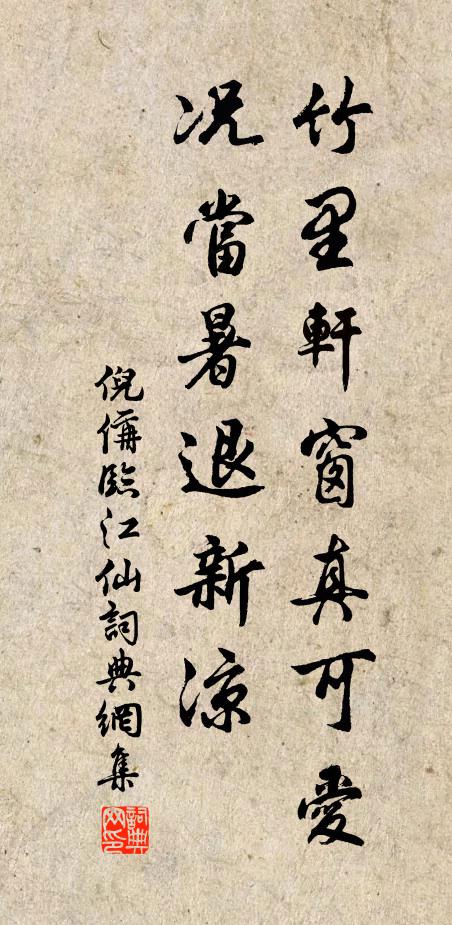 竹里軒窗真可愛
况當暑退新涼
倪偁臨江仙詞典網集
詞典網印